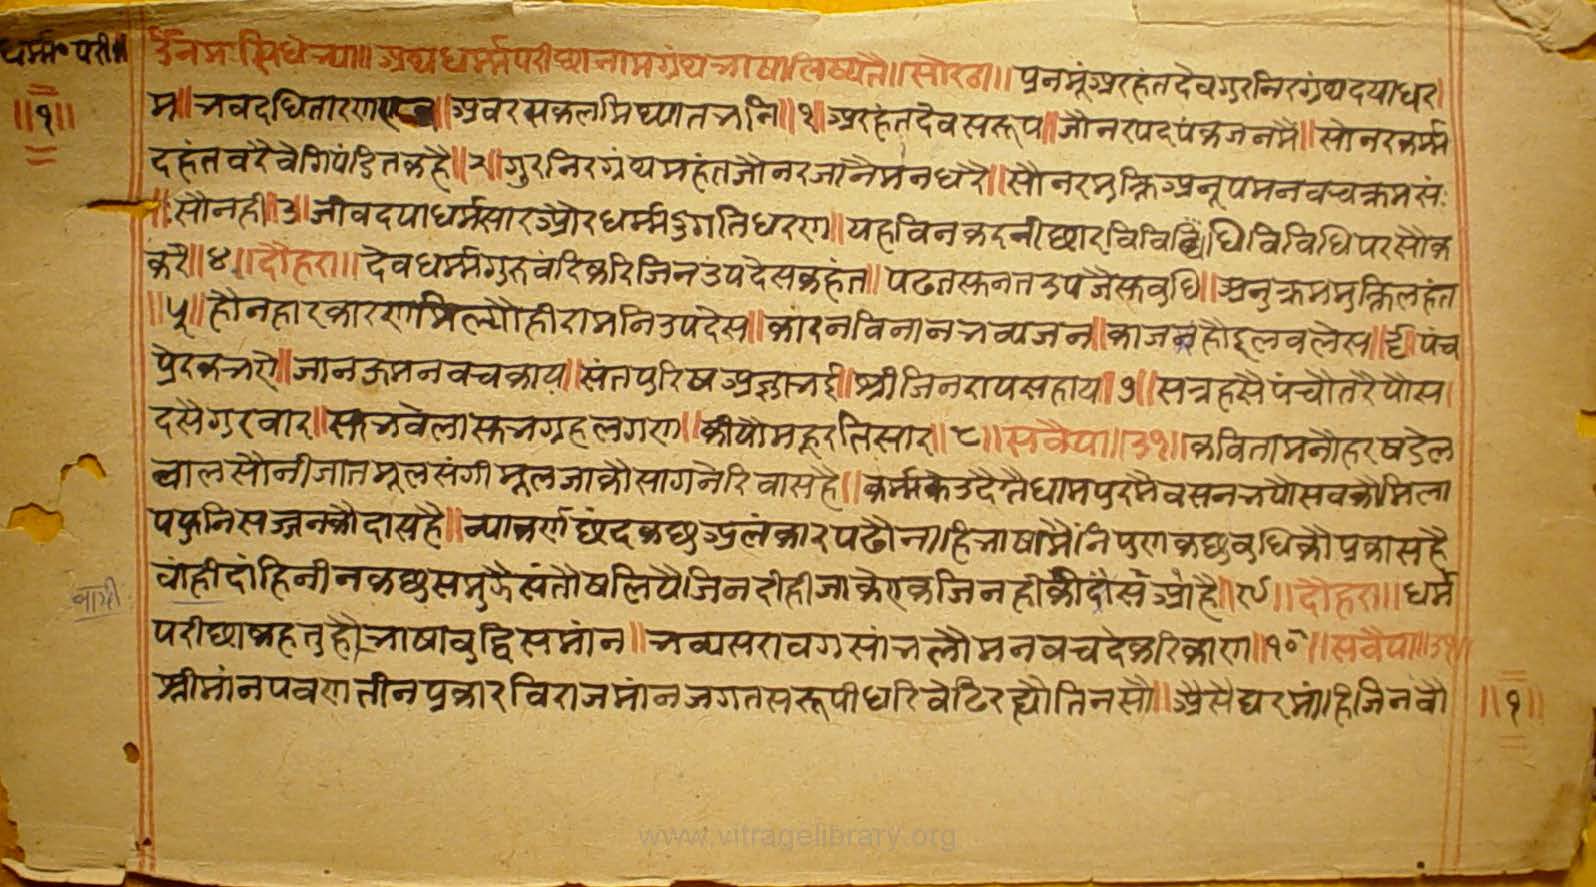 धर्म्म॰ परी॥
॥१॥
ॐ नमः सिधेभ्या॥ अथ धर्म्मपरीछा नाम ग्रंथ भाषा लिष्यतै॥ सोरठा॥ प्रनमूं अरहंत देव गुर निरग्रंथ दया धर
म॥ भवदधि तारण अवर सकल मिथ्यात भनि॥१॥ अरहंत देव सरूप॥ जौ नर पद पंकज नमै॥ सो नर कर्म्म
दहंत वरै वेगि पंडित कहै॥२॥ गुर निरग्रंथ महंत जौ नर जानै मन धरै॥ सौ नर मुक्ति अनूप मन वच क्रम सं
सौ नही॥३॥ जीव दया धर्म सार और धर्म्म दुगति धरण॥ यह विन कदनी छार विविधि विविधि पर सौ क
करै॥४॥ दौहरा॥ देव धर्म्म गुरु वंदि करि जिन उपदेस कहंत॥ पढत सुनत उपजै सुवुधि॥ अनुक्रम मुक्ति लहंत
॥५॥ हौनहार कारण मिल्यौ हीरामनि उपदेस॥ कारन विना न भव्य जन॥ काज न हौइ लवलेस॥६॥ पंच
प्रेरक भये॥ जानऊ मन वच काय॥ संत पुरिष अज्ञा भई॥ श्री जिनराय सहाय॥७॥ सत्रहसै पंचौतरै पौस
दसै गुरवार॥ सुभ वेला सुभ ग्रह लगण॥ कीयौ महूरति सार॥८॥ सवैया॥३१॥ कविता मनौहर षंडेल
वाल सौनी जात मूलसंगी मूल जाकौ सागानेरि वास है॥ कर्म्म के उदै तै धामपुर मै वसन भयौ सव कौ मिला
प फुनि सज्जन कौ दास है॥ व्याकर्ण छंद कछु अलंकार पढौ नाहि भाषा मै निपुण कछु वुधि कौ प्रकास है
वांही दांहिनी न कछु समुझै संतौष लियै जिन दीही जाकै एक जिन ही की आस है॥९॥ दौहरा॥ धर्म
परीछा कहतु हौ भाषा वुद्धि समांन॥ भव्य सरावग सांभलौ मन वच दे करि काण॥१०॥ सवैया॥३१॥
स्रीमांन पवण तीन प्रकार विराजमांन जगत सरूपी घरि वेढि रह्यौ तिन सौ॥ औसै घर मांहि जिन वौ
॥१॥
www.vitragelibrary.org